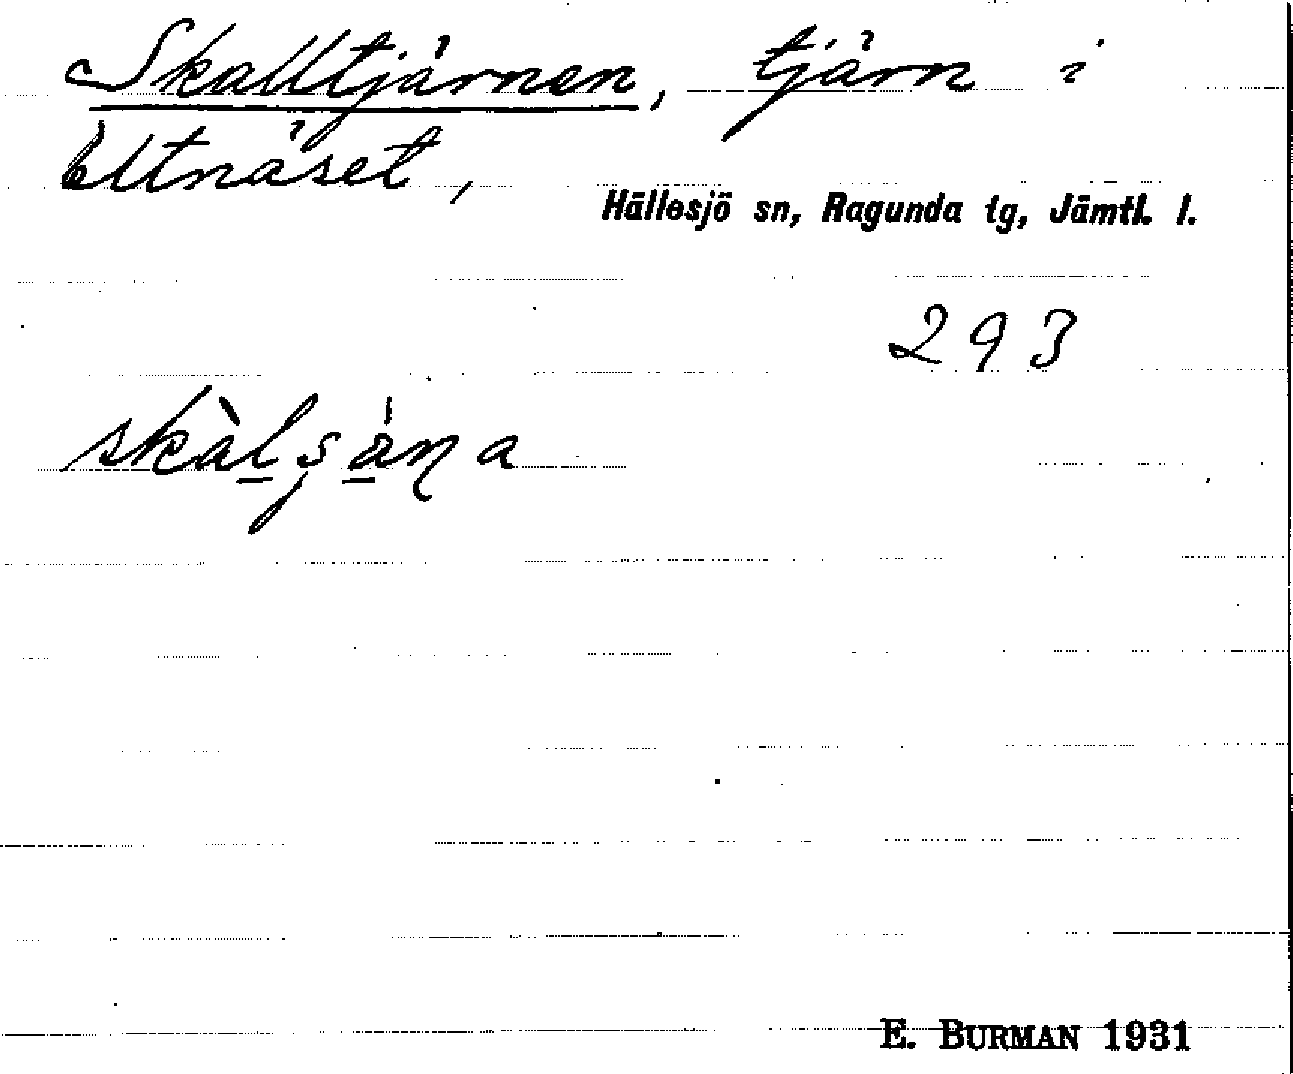 Skalltjärnen, tjärn i
Ultnäset,
Hällesjö sn, Ragunda tg, Jämtl. l.
293
E. BURMAN 1931